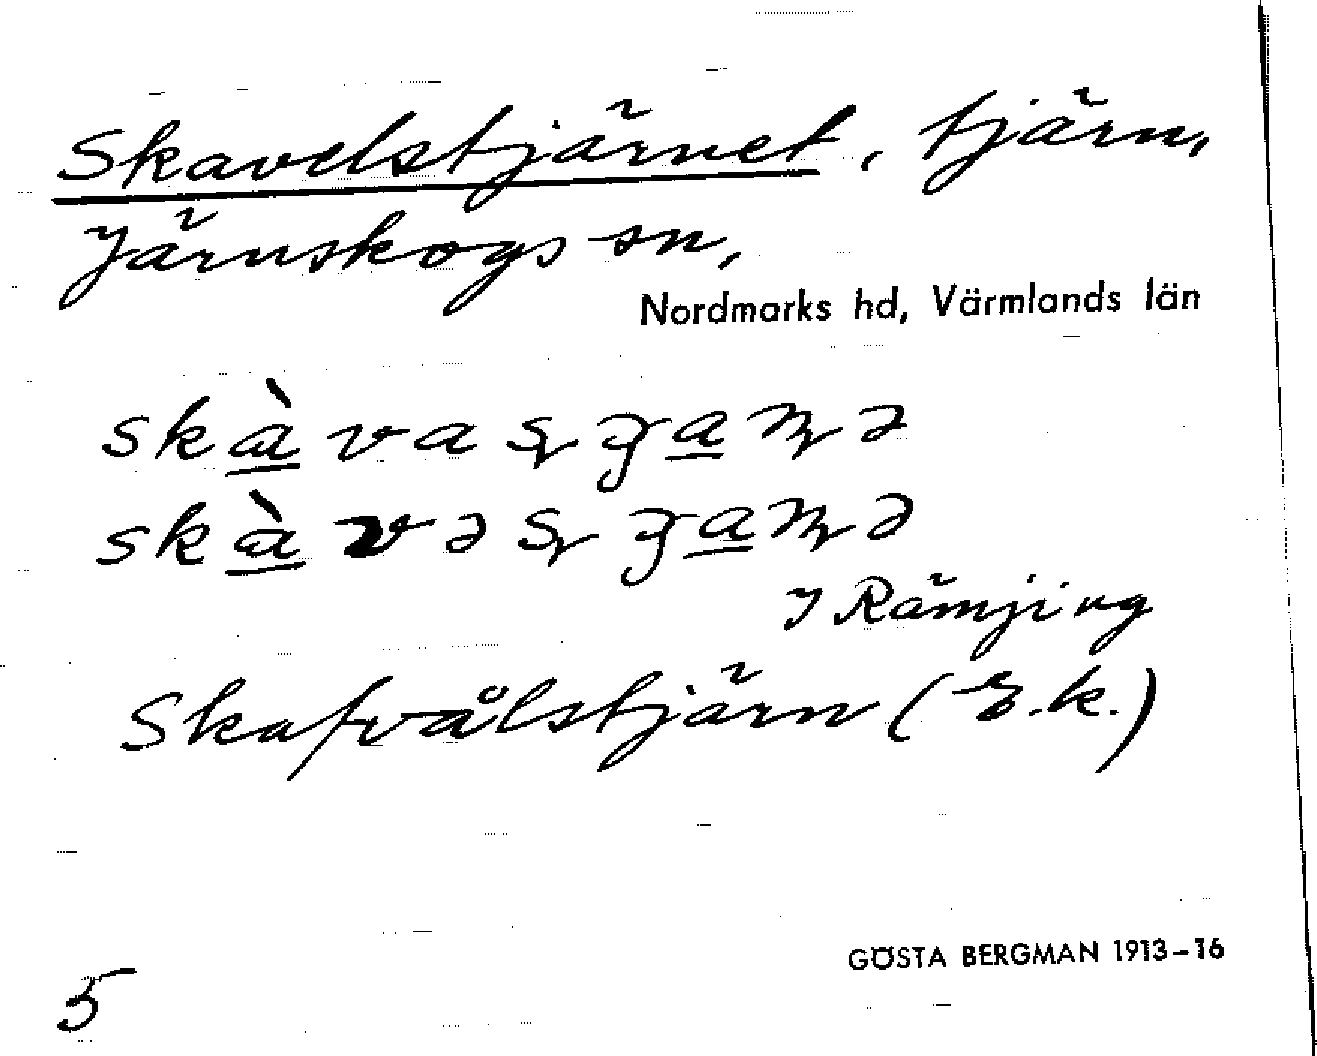 Skavelstjärnet, tjärn,
Järnskogs sn,
Nordmarks hd, Värmlands län
I Rämjing
Skafvålstjärn (E.k.)
GÖSTA BERGMAN 1913-16
5